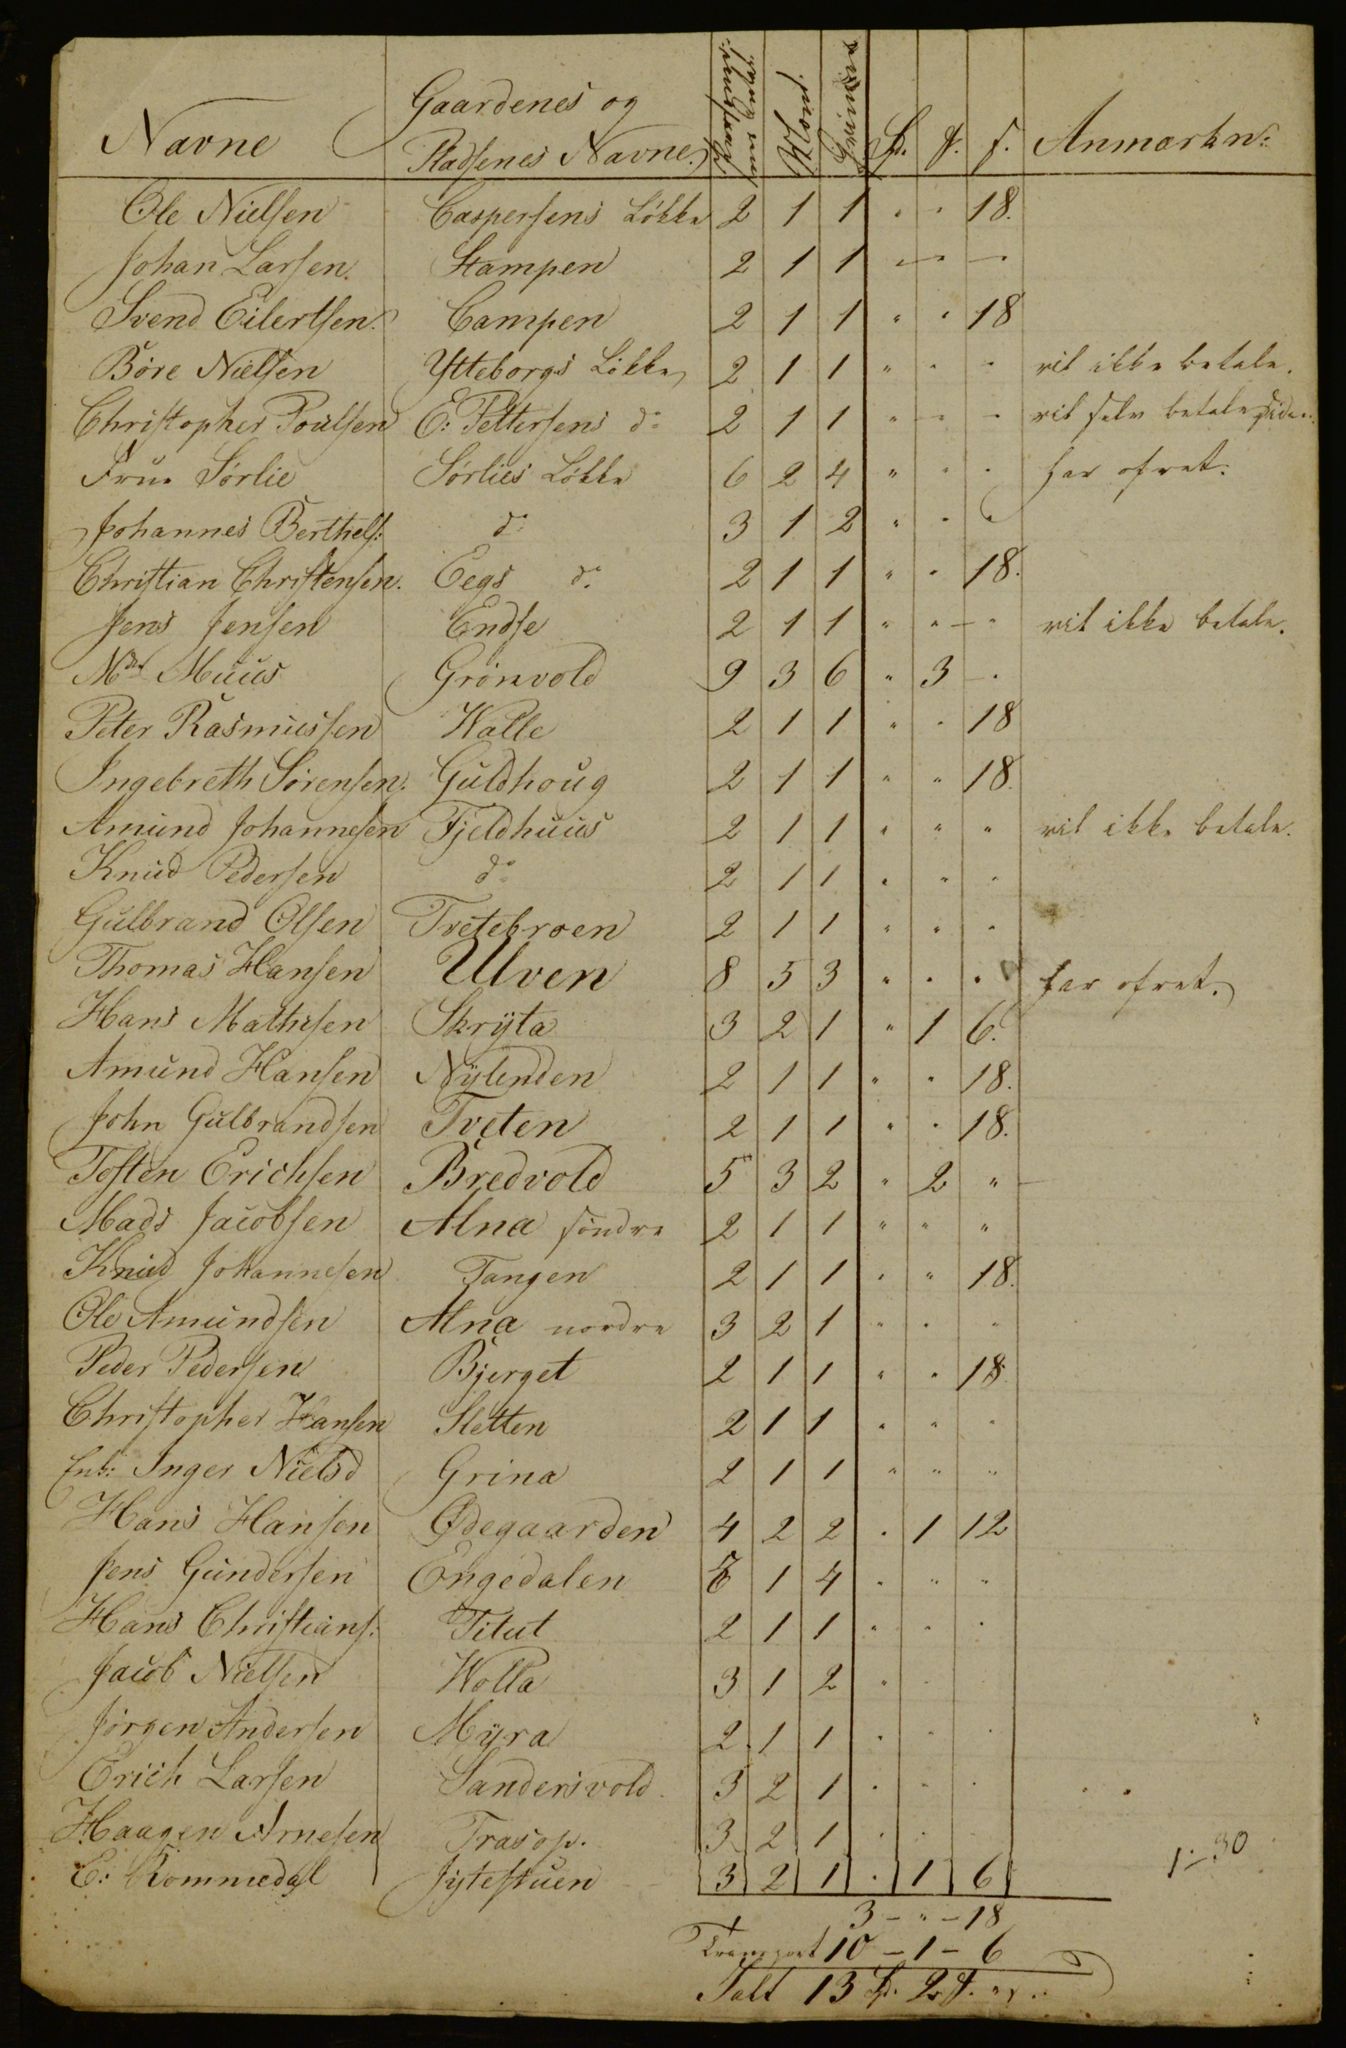 Navne Gaardenes og Pladsenes Navne. Sp. f. s. Anmærkn:
Ole Nielsen Caspersens Løkke 2 1 1 " " 18.
Johan Larsen. Stampen 2 1 1 " " "
Svend Eilertsen. Campen 2 1 1 " " 18
Børe Nielsen Ytteborgs Løkke 2 1 1 " " " vil ikke betale.
Christopher Poulsen E: Pettersens do 2 1 1 " " " vil selv betale siden.
Frue Sørlie Sørlies Løkke 6 2 4 " " " har ofret.
Johannes Berthels: do 3 1 2 " " "
Christian Christensen. Eegs do 2 1 1 " " 18.
Jens Jensen Endse 2 1 1 " " " vil ikke betale.
Md Muus Grönvold 9 3 6 " 3 "
Peter Rasmussen Walle 2 1 1 " " 18
Ingebreth Sörensen. Guldhoug 2 1 1 " " 18.
Amund Johannesen Fjeldhuus 2 1 1 " " " vil ikke betale.
Knud Pedersen do 2 1 1 " " "
Gulbrand Olsen Tvetebroen 2 1 1 " " "
Thomas Hansen Ulven 8 5 3 " " " har ofret.
Hans Mathisen Skryta 3 2 1 " 1 6.
Amund Hansen Nylenden 2 1 1 " " 18.
John Gulbrandsen Tveten 2 1 1 " " 18.
Tosten Erichsen Bredvold 5 3 2 " 2 "
Mads Jacobsen Alna söndre 2 1 1 " " "
Knud Johannesen Tangen 2 1 1 " " 18.
Ole Amundsen Alna nordre 3 2 1 " " "
Peder Pedersen Bjerget 2 1 1 " " 18.
Christopher Hansen Sletten 2 1 1 " " "
Enk: Inger Nielsd Grina 2 1 1 " " "
Hans Hansen Ødegaarden 4 2 2 " 1 12
Jens Gundersen Engedalen 5 1 4 " " "
Hans Christians: Titut 2 1 1 " " "
Jacob Nielsen Wolla 3 1 2 "
Jørgen Andersen Myra 2 1 1 " " "
Erich Larsen Sandersvold. 3 2 1 " " "
Haagen Arnesen Trasop. 3 2 1 " "
E: Kommedal Jytestuen 3 2 1 " 1 6
1-30
3 - " - 18
Transport 10 - 1 - 6
Talt 13 Sp. 2 f. " s.